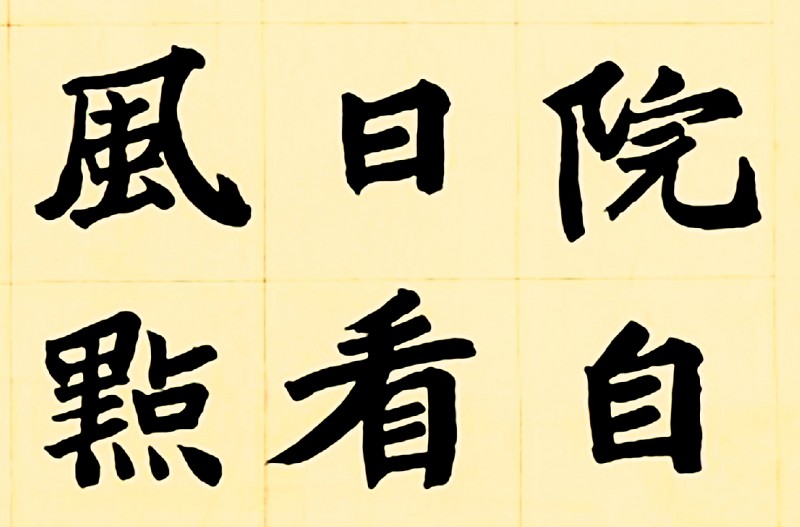 院自
日看
風點